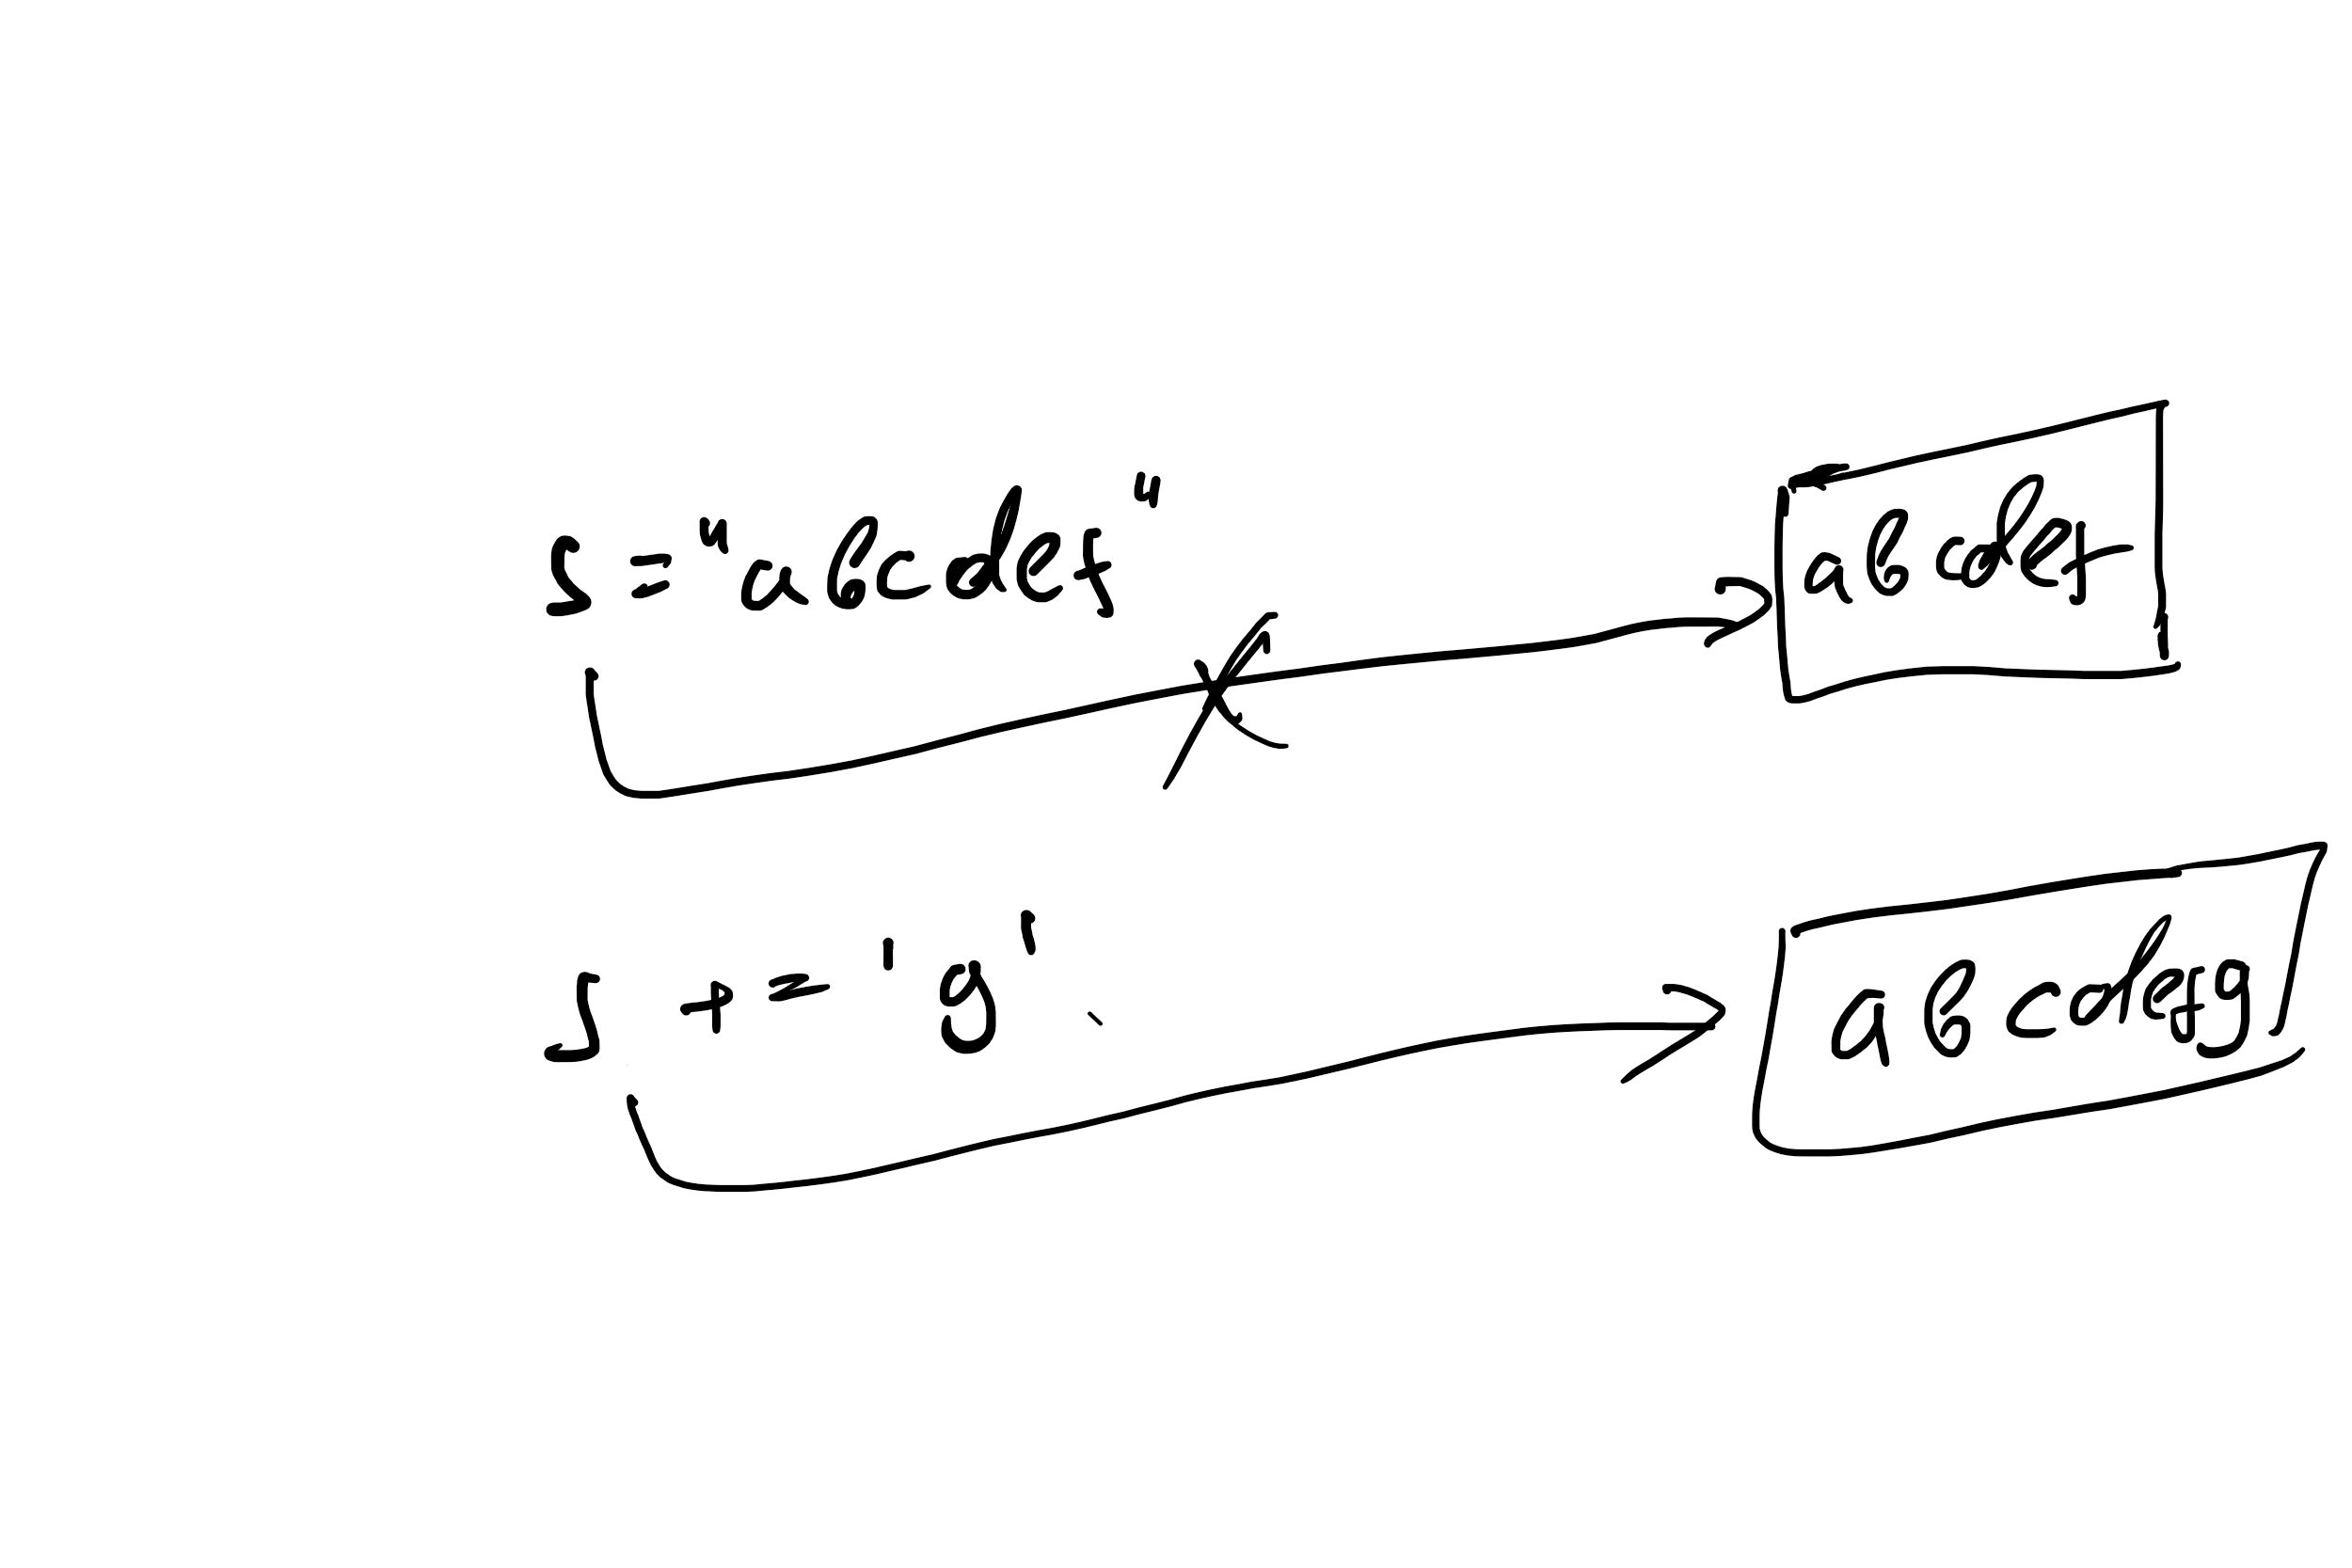 s = "abcdef"
abcdef
s += 'g'
abcdefg